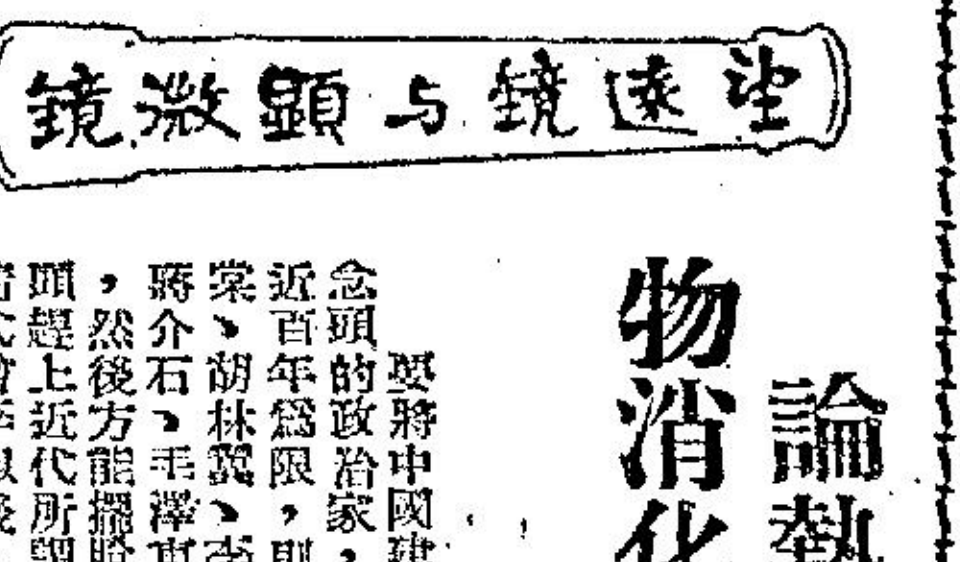 望遠鏡与顯微鏡
論熱
物消化
要將中國建
念頭的政治家，
近百年爲限，則
棠、胡林翼、
蔣介石、毛澤東
，然後方能擺脫
頭趕上近代所謂